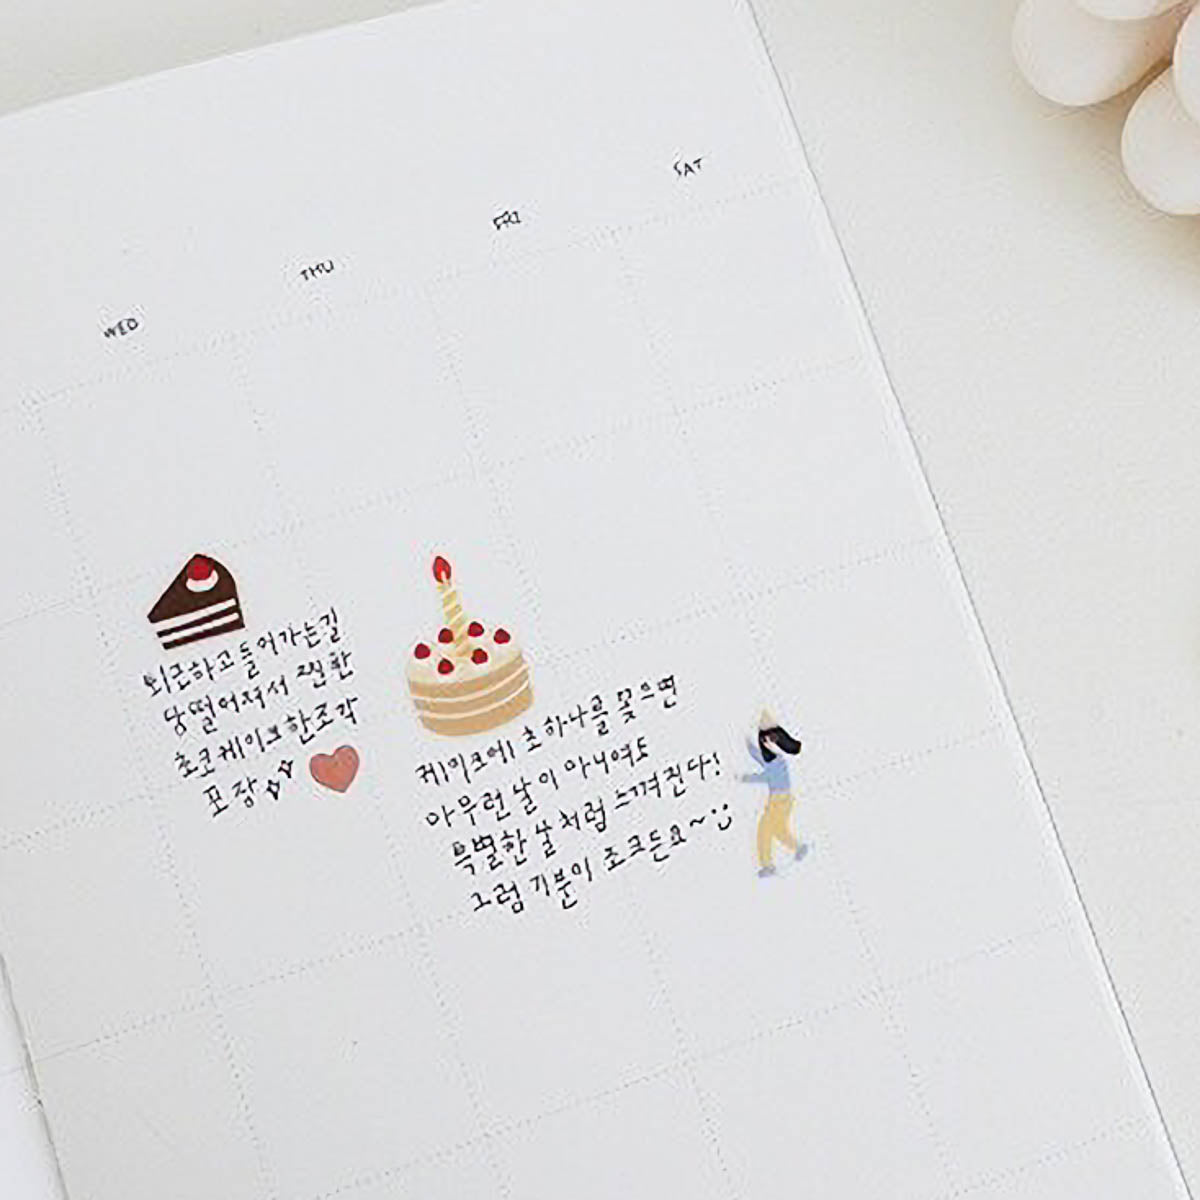 WED
THU
FRI
SAT
퇴근하고 들어가는길
당떨어져서 찐한
초코케이크 한조각
포장
케이크에 초하나를 꽂으면
아무런 날이 아니여도
특별한 날처럼 느껴진다!
그럼 기분이 조크든요~